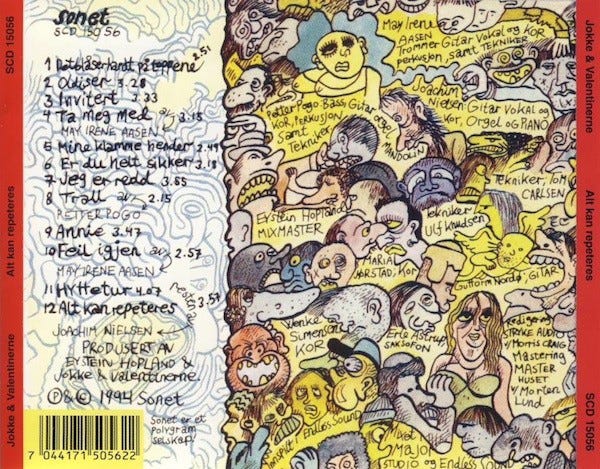 SCD 15056
Alt kan repeteres
Jokke & Valentinerne
sonet
SCD 150 56
1 Det blåser hardt på toppene 2.51
2 Odiser 3.28
3 Invitert 3.33
4 Ta meg med av 3.15
MAY IRENE AASEN
5 Mine klamme hender 2.49
6 Er du helt sikker 3.18
7 Jeg er redd 3.55
8 Troll av 2.15
PETTER POGO
9 Annie 3.47
10 Feil igjen av 2.57
MAY IRENE AASEN
11 Hyttetur 4.07
12 Alt kan repeteres 3.54
resten av
JOACHIM NIELSEN
PRODUSERT AV
EYSTEIN HOPLAND &
Jokke & Valentinerne.
Ⓟ & © 1994 Sonet
Sonet er et
Polygram
selskap
7 044171 505622
May Irene
AASEN
Trommer Gitar Vokal og KOR
perkusjon, samt TEKNIKER
Petter Pogo. Bass, Gitar orgel
KOR, PERKUSJON
samt
Tekniker
MANDOLIN
Joachim
Nielsen Gitar Vokal og
Kor, Orgel og PIANO
Eystein Hopland
MIXMASTER
Tekniker, TOM
CARLSEN
Tekniker
Ulf Knudsen
MARIA
KOR
Guttorm Nordø, GITAR
Wenke
Simensen
KOR
Erts Astrup
SAKSOFON
STRYKE AUDIO
v/Morris CRAIG
Mastering
MASTER
HUSET
v/Morten
Lund
Endless Sound
Mixet i
Major
STUDIO og Endless Sound
Jokke & Valentinerne
Alt kan repeteres
SCD 15056